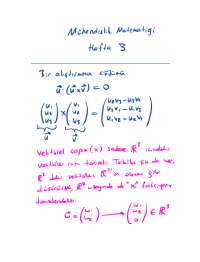 Mühendislik Matematiği
Hafta 3
Bir alıştırmanın çözümü
u⃗ · (u⃗ × v⃗) = 0
(u₁ u₂ u₃) × (v₁ v₂ v₃) = (u₂v₃ - u₃v₂
u₃v₁ - u₁v₃
u₁v₂ - u₂v₁)
u⃗ v⃗
Vektörel çarpım (×) sadece ℝ³ içindeki
vektörler için tanımlı. Tabiki
ℝ² deki vektörleri ℝ³ ün elemanı gibi
düşünürsek, ℝ²
tanımlanabilir.
u⃗ = (u₁ u₂) → (u₁ u₂ 0) ∈ ℝ³